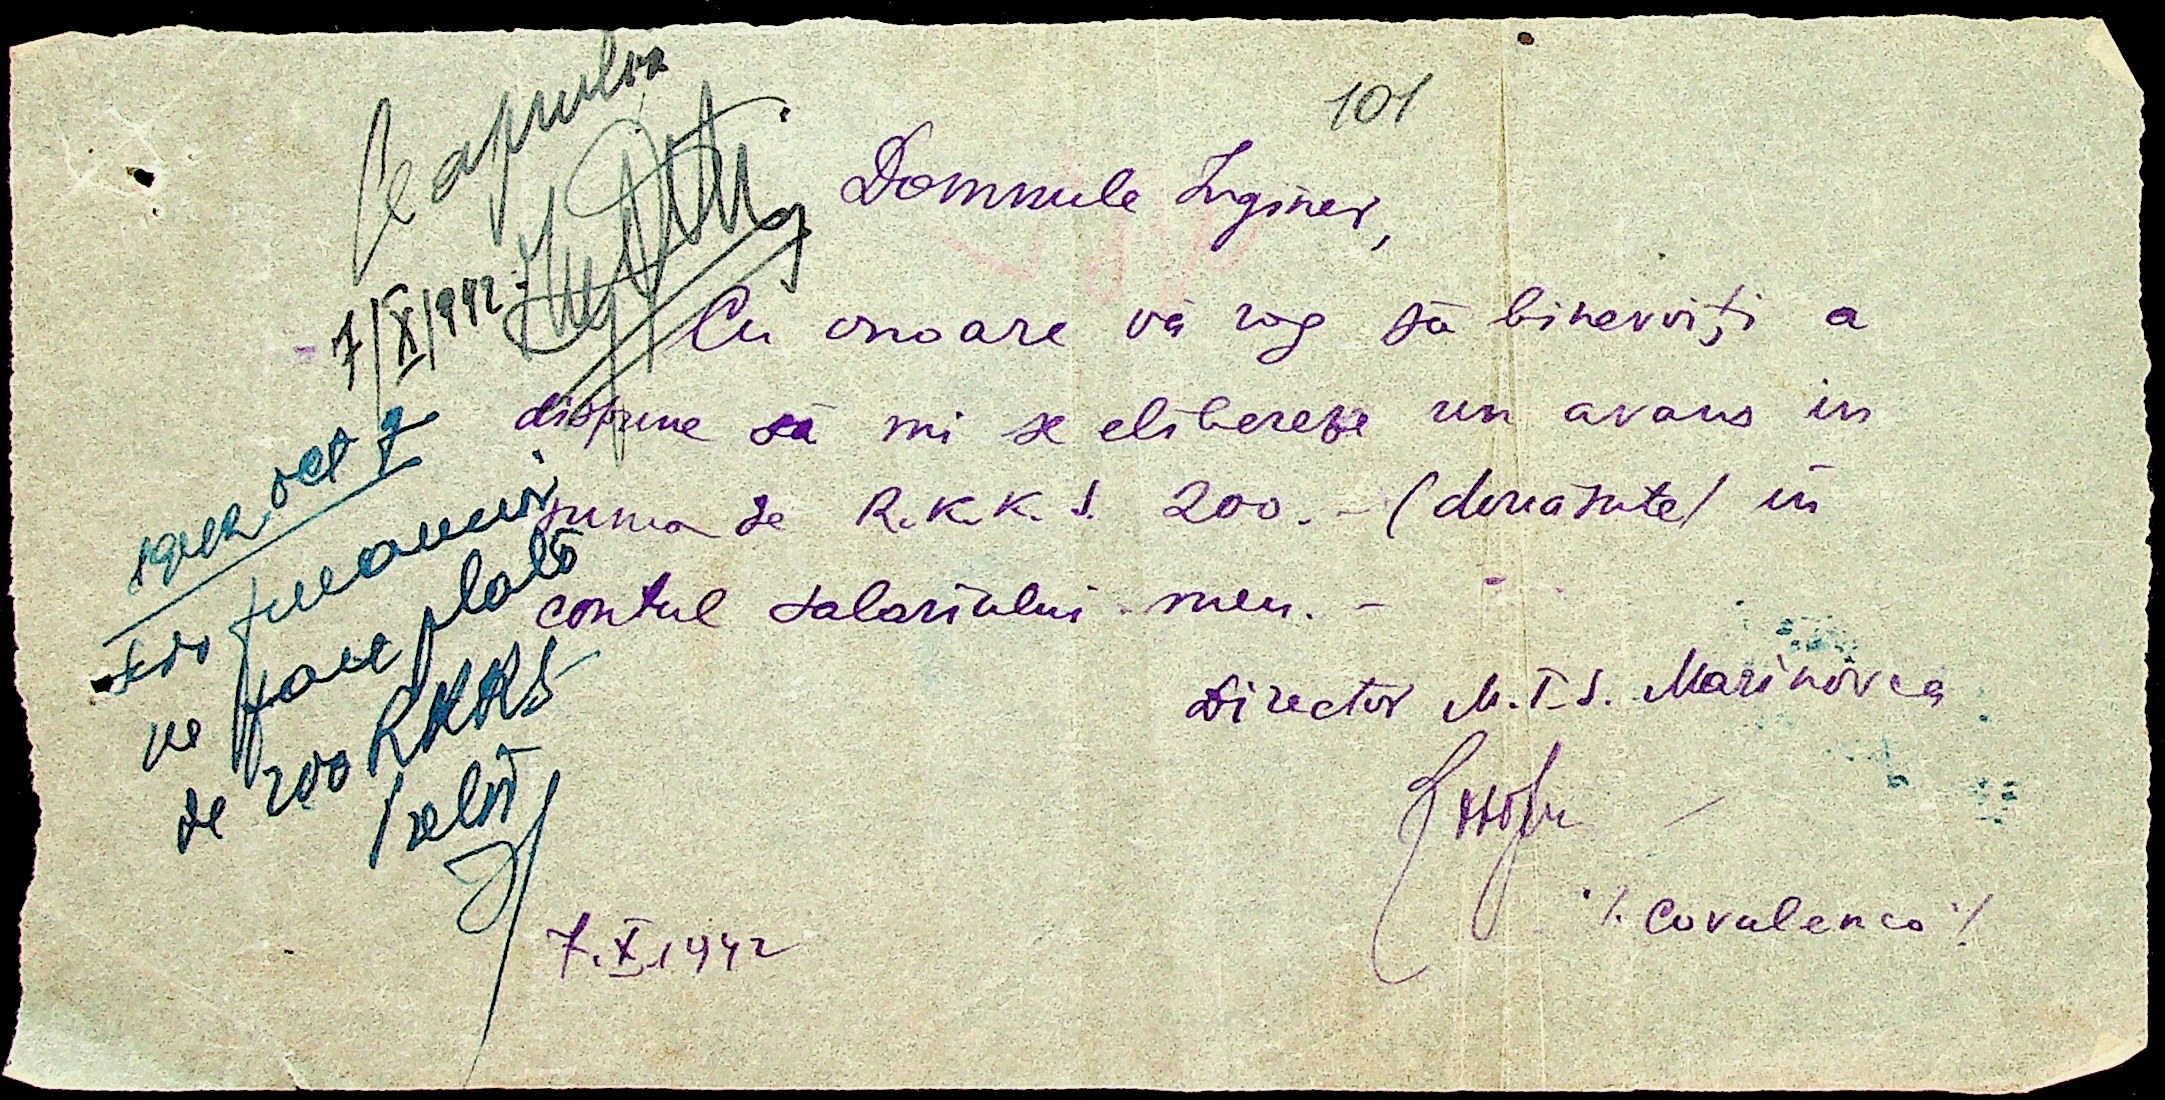 101
Se aproba
7/X/1942
Domnule Inginer,
Cu onoare vă rog să binevoiți a
dispune să mi se elibereze un avans în
suma de R.K.K.S. 200.- (douăsute) în
contul salariului meu. -
Director M.T.S. Marinovca
./. Covalenco ./.
7.X.1942
oct 7
financiar
va face plata
de 200 RKKS